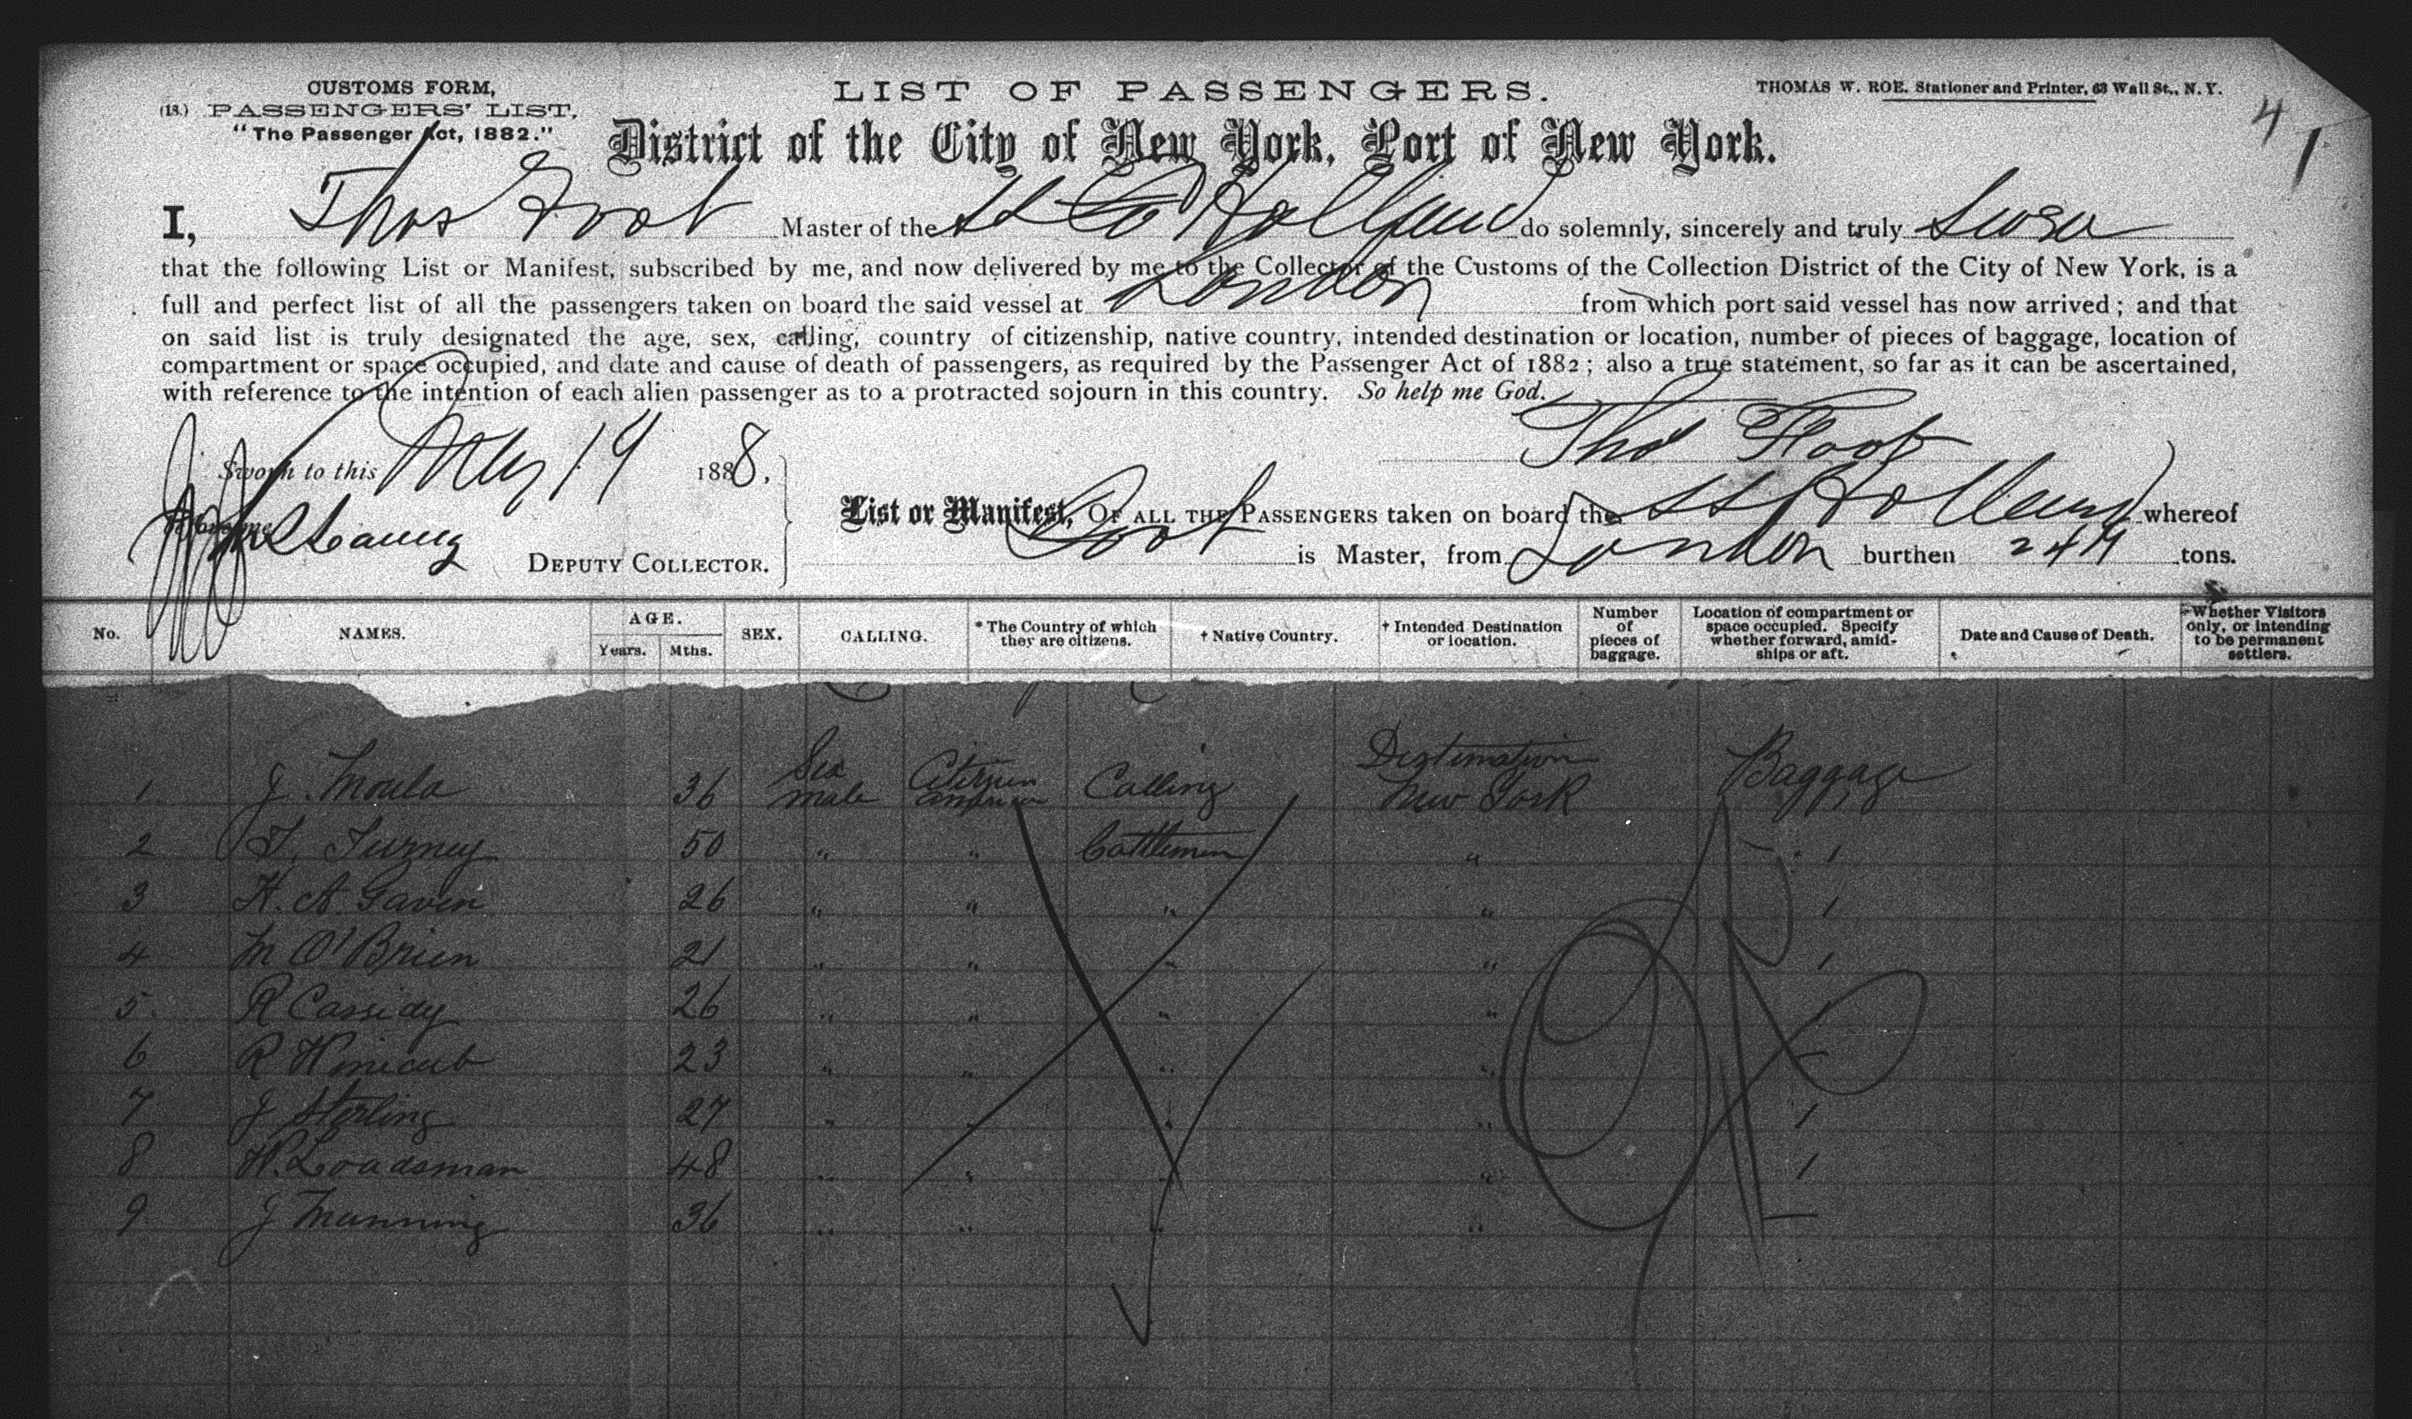 CUSTOMS FORM,
(18.) PASSENGERS' LIST,
"The Passenger Act, 1882."
LIST OF PASSENGERS.
THOMAS W. ROE, Stationer and Printer, 63 Wall St., N. Y.
4 1
District of the City of New York, Port of New York.
I, Thos Foot Master of the SS Holland do solemnly, sincerely and truly Swear
that the following List or Manifest, subscribed by me, and now delivered by me to the Collector of the Customs of the Collection District of the City of New York, is a
full and perfect list of all the passengers taken on board the said vessel at London from which port said vessel has now arrived; and that
on said list is truly designated the age, sex, calling, country of citizenship, native country, intended destination or location, number of pieces of baggage, location of
compartment or space occupied, and date and cause of death of passengers, as required by the Passenger Act of 1882; also a true statement, so far as it can be ascertained,
with reference to the intention of each alien passenger as to a protracted sojourn in this country. So help me God.
Thos Foot
Sworn to this May 19 1888.
before me
DEPUTY COLLECTOR.
List or Manifest, OF ALL THE PASSENGERS taken on board the SS Holland whereof
Foot is Master, from London burthen tons.
No. NAMES. AGE. Years. Mths. SEX. CALLING. * The Country of which they are citizens. † Native Country. † Intended Destination or location. Number of pieces of baggage. Location of compartment or space occupied. Specify whether forward, amidships or aft. Date and Cause of Death. Whether Visitors only, or intending to be permanent settlers.
Sex Citizen Calling Destination Baggage
1. J. Moula 36 male American New York
2 T. Turney 50 " " Cattlemen " 1
3 H. A. Gaven 26 " " " " 1
4 M O'Brien 21 " " " " 1
5. R Cassidy 26 " " " " 1
6 R 23 " " " " –
7 J Sterling 27 " " " " 1
8 W. Loadsman 48 " " " " 1
9 J Manning 36 " " " " –